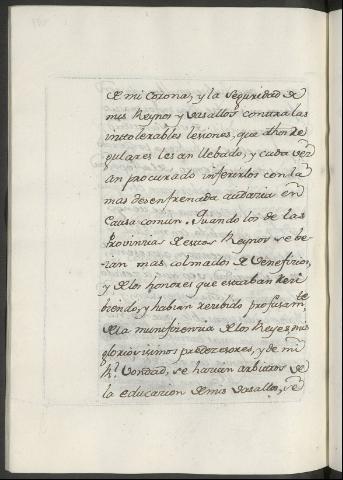 de mi Corona, y la seguridad de
mis Reynos y Vasallos contra las
intolerables lesiones, que dhos Re
gulares les an llebado, y cada vez
an procurado inferirlos con la
mas desenfrenada audacia en
Causa comun. Quando los de las
Provincias de estos Reynos se be-
ian mas colmados de Veneficios,
y de los honores que estaban Reci
biendo, y habian recibido profusam.te
de la munificencia de los Reyes, mis
gloriosisimos predecesores, y de mi
R.l Vondad, se hacian arbitros de
la educacion de mis Vasallos, se